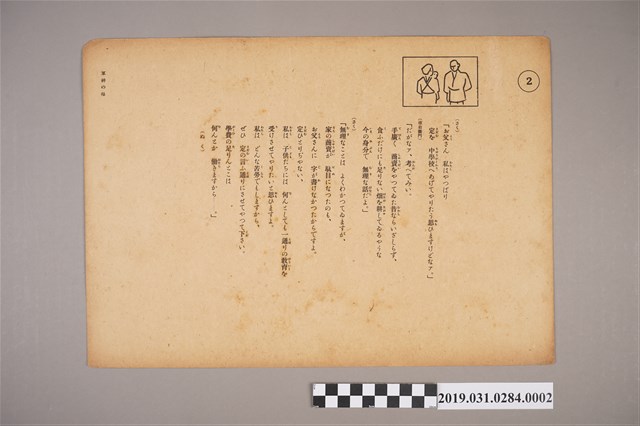 2
(さと)
「お父さん 私はやつぱり
定を 中學校へあげてやりたう思ひますけどなァ。」
「だがなァ、考へてみい。
手廣く 商賣をやつてゐた昔ならいざしらず、
食ふだけにも足りない畑を耕してゐるやうな
今の身分で 無理な話だよ。」
(さと)
「無理なことは よくわかつてゐますが、
家の商賣が 駄目になつたのも、
お父さんに 字が書けなかつたからですよ。
定ひとりぢやない、
私は 子供たちには 何んとしても一通りの教育を
受けさせてやりたいと思ひますよ。
私は どんな苦勞でもしますから、
ぜひ 定の言ふ通りにさせてやつて下さい。
學費の足りんところは
何んとか 働きますから ――。」
(ぬく)
軍神の母
2019.031.0284.0002